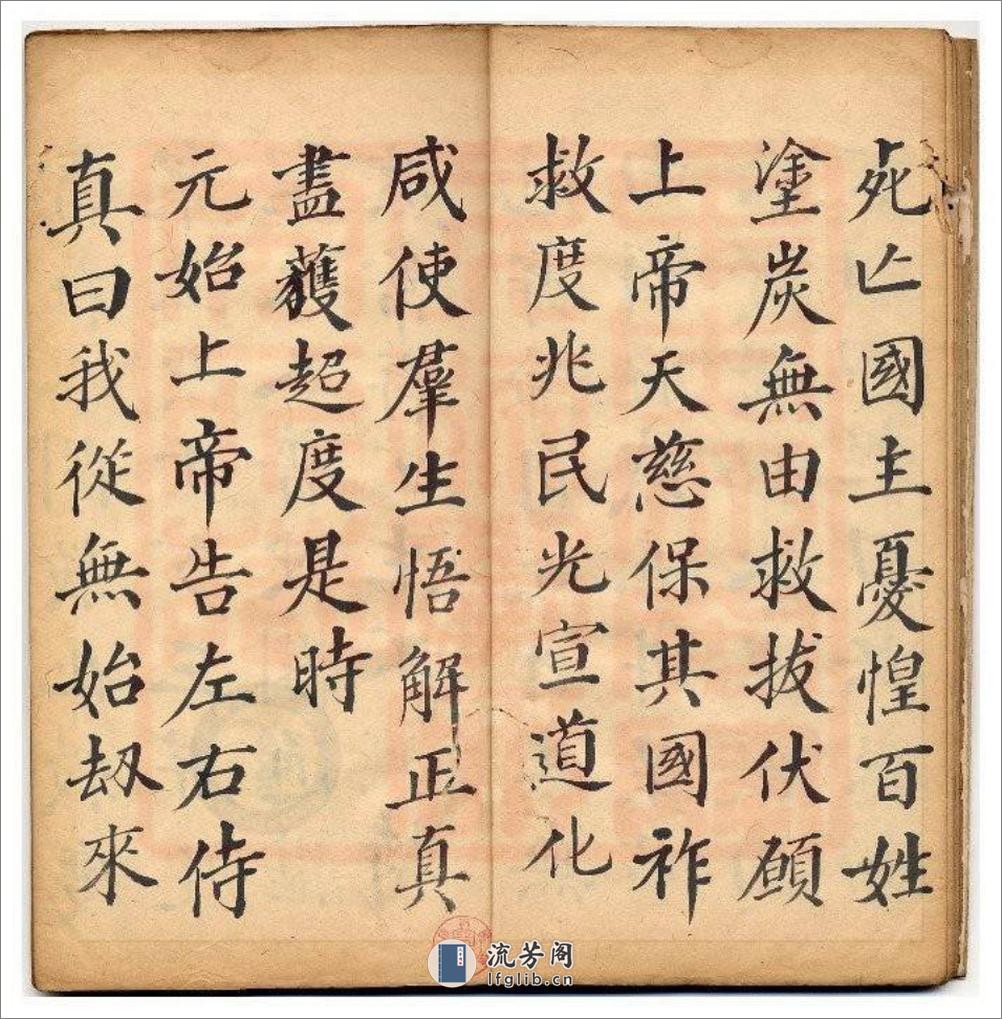 死亡國主憂惶百姓
塗炭無由救拔伏願
上帝天慈保其國祚
救度兆民光宣道化
咸使羣生悟解正真
盡獲超度是時
元始上帝告左右侍
真曰我從無始劫來
流芳阁
lfglib.cn